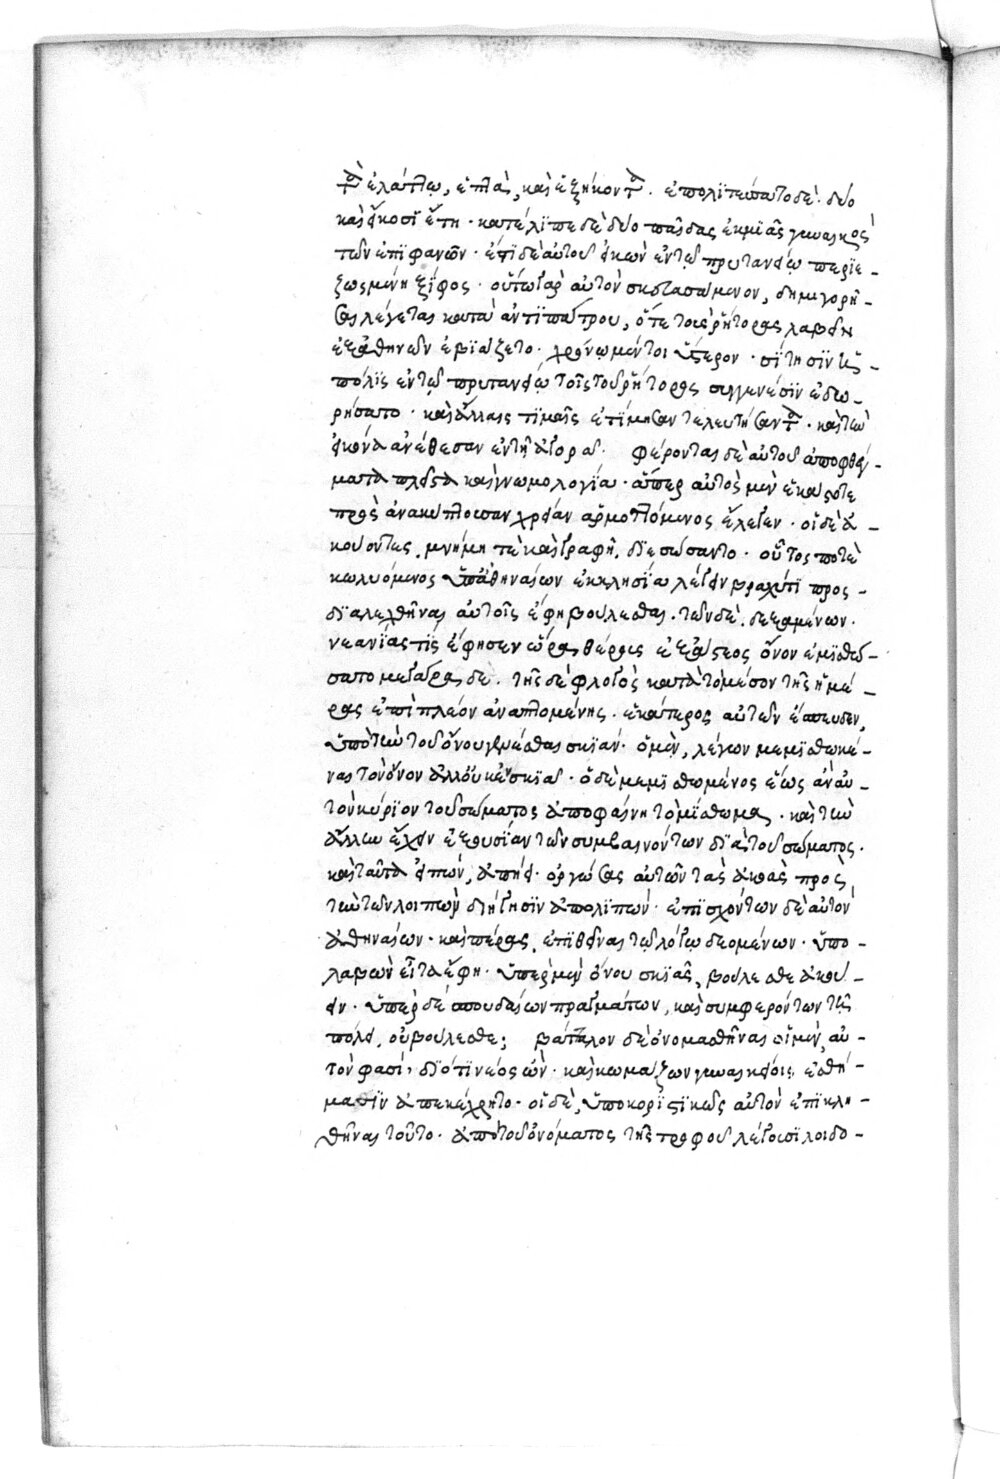 τὰ ἐλάττω, ἑπτὰ, καὶ ἑξήκοντα. ἐπολιτεύσατο δὲ. δύο
καὶ εἴκοσϊ ἔτη· κατέλϊπε δὲ δύο παῖδας ἐκ μϊᾶς γυναικὸς
τῶν ἐπϊφανῶν· ἔστϊ δὲ αὐτοῦ εἰκὼν ἐν τῷ πρυτανείῳ περϊε-
ζωσμένη ξίφος· οὕτω γὰρ αὐτὸν σκευασάμενον, δημιγορῆ-
σαι λέγεται κατὰ ἀντϊπάτρου, ὅτε τοὺς ῥήτορας λαβεῖν
ἐξ ἀθηνῶν ἐβϊάζετο· χρόνῳ μέντοι ὕστερον· σίτησϊν ἡ
πόλϊς ἐν τῷ πρυτανείῳ τοῖς τοῦ ῥήτορος συγγενέσϊν ἐδω-
ρήσατο· καὶ ἄλλαις τϊμαῖς ἐτίμησαν τελευτήσαντα· καὶ τὴν
εἰκόνα ἀνέθεσαν ἐν τῇ ἀγορᾷ· φέρονται δὲ αὐτοῦ ἀποφθέγ-
ματα πλεῖστα καὶ γνωμολογία· ἅπερ αὐτὸς μὲν ἑκάστοτε
πρὸς ἀνακύπτουσαν χρείαν ἁρμοττόμενος ἔλεγεν· οἱ δὲ ἀ-
κούοντες, μνήμη τὲ καὶ γραφῇ, δϊεσώσαντο· οὗτος ποτὲ
κωλυόμενος ὑπ' ἀθηναίων ἐκκλησία λέγειν βραχύ τϊ προς-
δϊαλεχθῆναι αὐτοῖς ἔφη βούλεσθαι. τῶν δὲ. δεξαμένων·
νεανίας τϊς ἔφησεν ὥρας θέρους ἐξ ἄστεος ὄνον ἐμϊσθώ-
σατο μέγαράδε. τῆς δὲ φλογὸς κατὰ τὸ μέσον τῆς ἡμέ-
ρας ἐπὶ πλέον ἀναπτομένης· ἑκάτερος αὐτῶν ἔσπευδεν,
ὑπὸ τὴν τοῦ ὄνου γενέσθαι σκϊάν· ὁ μὲν, λέγων μεμϊσθωκέ-
ναι τὸν ὄνον ἀλλ' οὐκέτι σκϊάν· ὁ δὲ μεμϊσθωμένος ἕως ἂν αὐ-
τὸν κύρϊον τοῦ σώματος ἀποφαίνη τὸ μίσθωμα· καὶ τὴν
ἄλλην ἔχειν ἐξουσϊαν τῶν συμβαινόντων δϊὰ τοῦ σώματος·
καὶ ταῦτα εἰπὼν, ἀπῄει· ὀργώσας αὐτῶν τὰς ἀκοὰς πρὸς
τὴν τῶν λοιπῶν διήγησϊν ἀπολϊπών· ἐπϊσχόντων δὲ αὐτὸν
ἀθηναίων· καὶ πέρας ἐπϊθεῖναι τῷ λόγῳ δεομένων· ὑπο-
λαβὼν εἶτα ἔφη· ὑπὲρ μὲν ὄνου σκϊᾶς, βούλεσθε ἀκού-
ειν· ὑπὲρ δέ σπουδαίων πραγμάτων, καὶ συμφερόντων τῇ
πόλει, οὐ βούλεσθε; βάτταλον δὲ ὀνομασθῆναι οἱ μὲν, αὐ-
τόν φασί, δϊότϊ νέος ὢν· καὶ κωμάζων γυναικείοις ἐσθή-
μασϊν ἀπεκέχρητο· οἱ δὲ, ὑποκορϊστϊκῶς αὐτὸν ἐπϊκλη-
θῆναι τοῦτο· ἀπὸ τοῦ ὀνόματος τῆς τροφοῦ λέγουσϊ λοιδο-